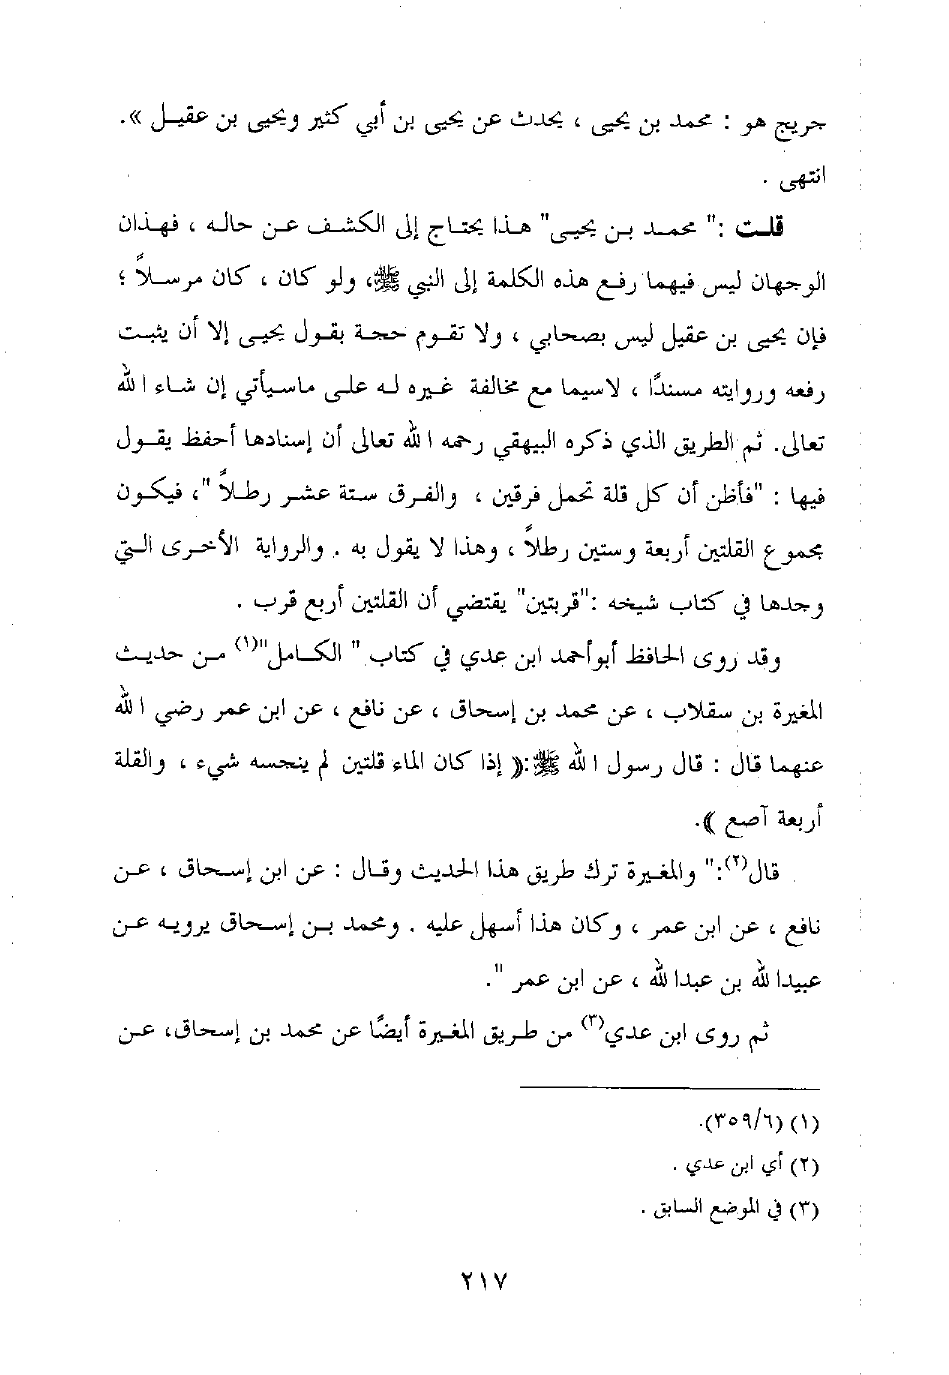 جريج هو : محمد بن يحيى ، يحدث عن يحيى بن أبي كثير ويحيى بن عقيـل ».
انتهى .
قلـت :" محمـد بـن يحيـى" هـذا يحتـاج إلى الكشـف عـن حالـه ، فهـذان
الوجهان ليس فيهما رفع هذه الكلمة إلى النبي ﷺ، ولو كان ، كان مرسـلاً ؛
فإن يحيى بن عقيل ليس بصحابي ، ولا تقـوم حجـة بقـول يحيـى إلا أن يثبـت
رفعه وروايته مسندًا ، لاسيما مع مخالفة غـيره لـه علـى ماسـيأتي إن شـاء الله
تعالى. ثم الطريق الذي ذكره البيهقي رحمه الله تعالى أن إسنادها أحفظ يقـول
فيها : "فأظن أن كل قلة تحمل فرقين ، والفرق ستة عشر رطـلاً "، فيكـون
مجموع القلتين أربعة وستين رطلاً ، وهذا لا يقول به . والرواية الأخـرى الـتي
وجدها في كتاب شيخه :"قربتين" يقتضي أن القلتين أربع قرب .
وقد روى الحافظ أبوأحمد ابن عدي في كتاب " الكـامل"(١) مـن حديـث
المغيرة بن سقلاب ، عن محمد بن إسحاق ، عن نافع ، عن ابن عمر رضي الله
عنهما قال : قال رسول الله ﷺ:﴿ إذا كان الماء قلتين لم ينجسه شيء ، والقلة
أربعة آصع ﴾.
قال(٢):" والمغيرة ترك طريق هذا الحديث وقـال : عن ابن إسـحاق ، عـن
نافع ، عن ابن عمر ، وكان هذا أسهل عليه . ومحمد بـن إسـحاق يرويـه عـن
عبيدالله بن عبدالله ، عن ابن عمر ".
ثم روى ابن عدي(٣) من طـريق المغيرة أيضًا عن محمد بن إسحاق، عـن
(١) (٣٥٩/٦).
(٢) أي ابن عدي .
(٣) في الموضع السابق .
٢١٧